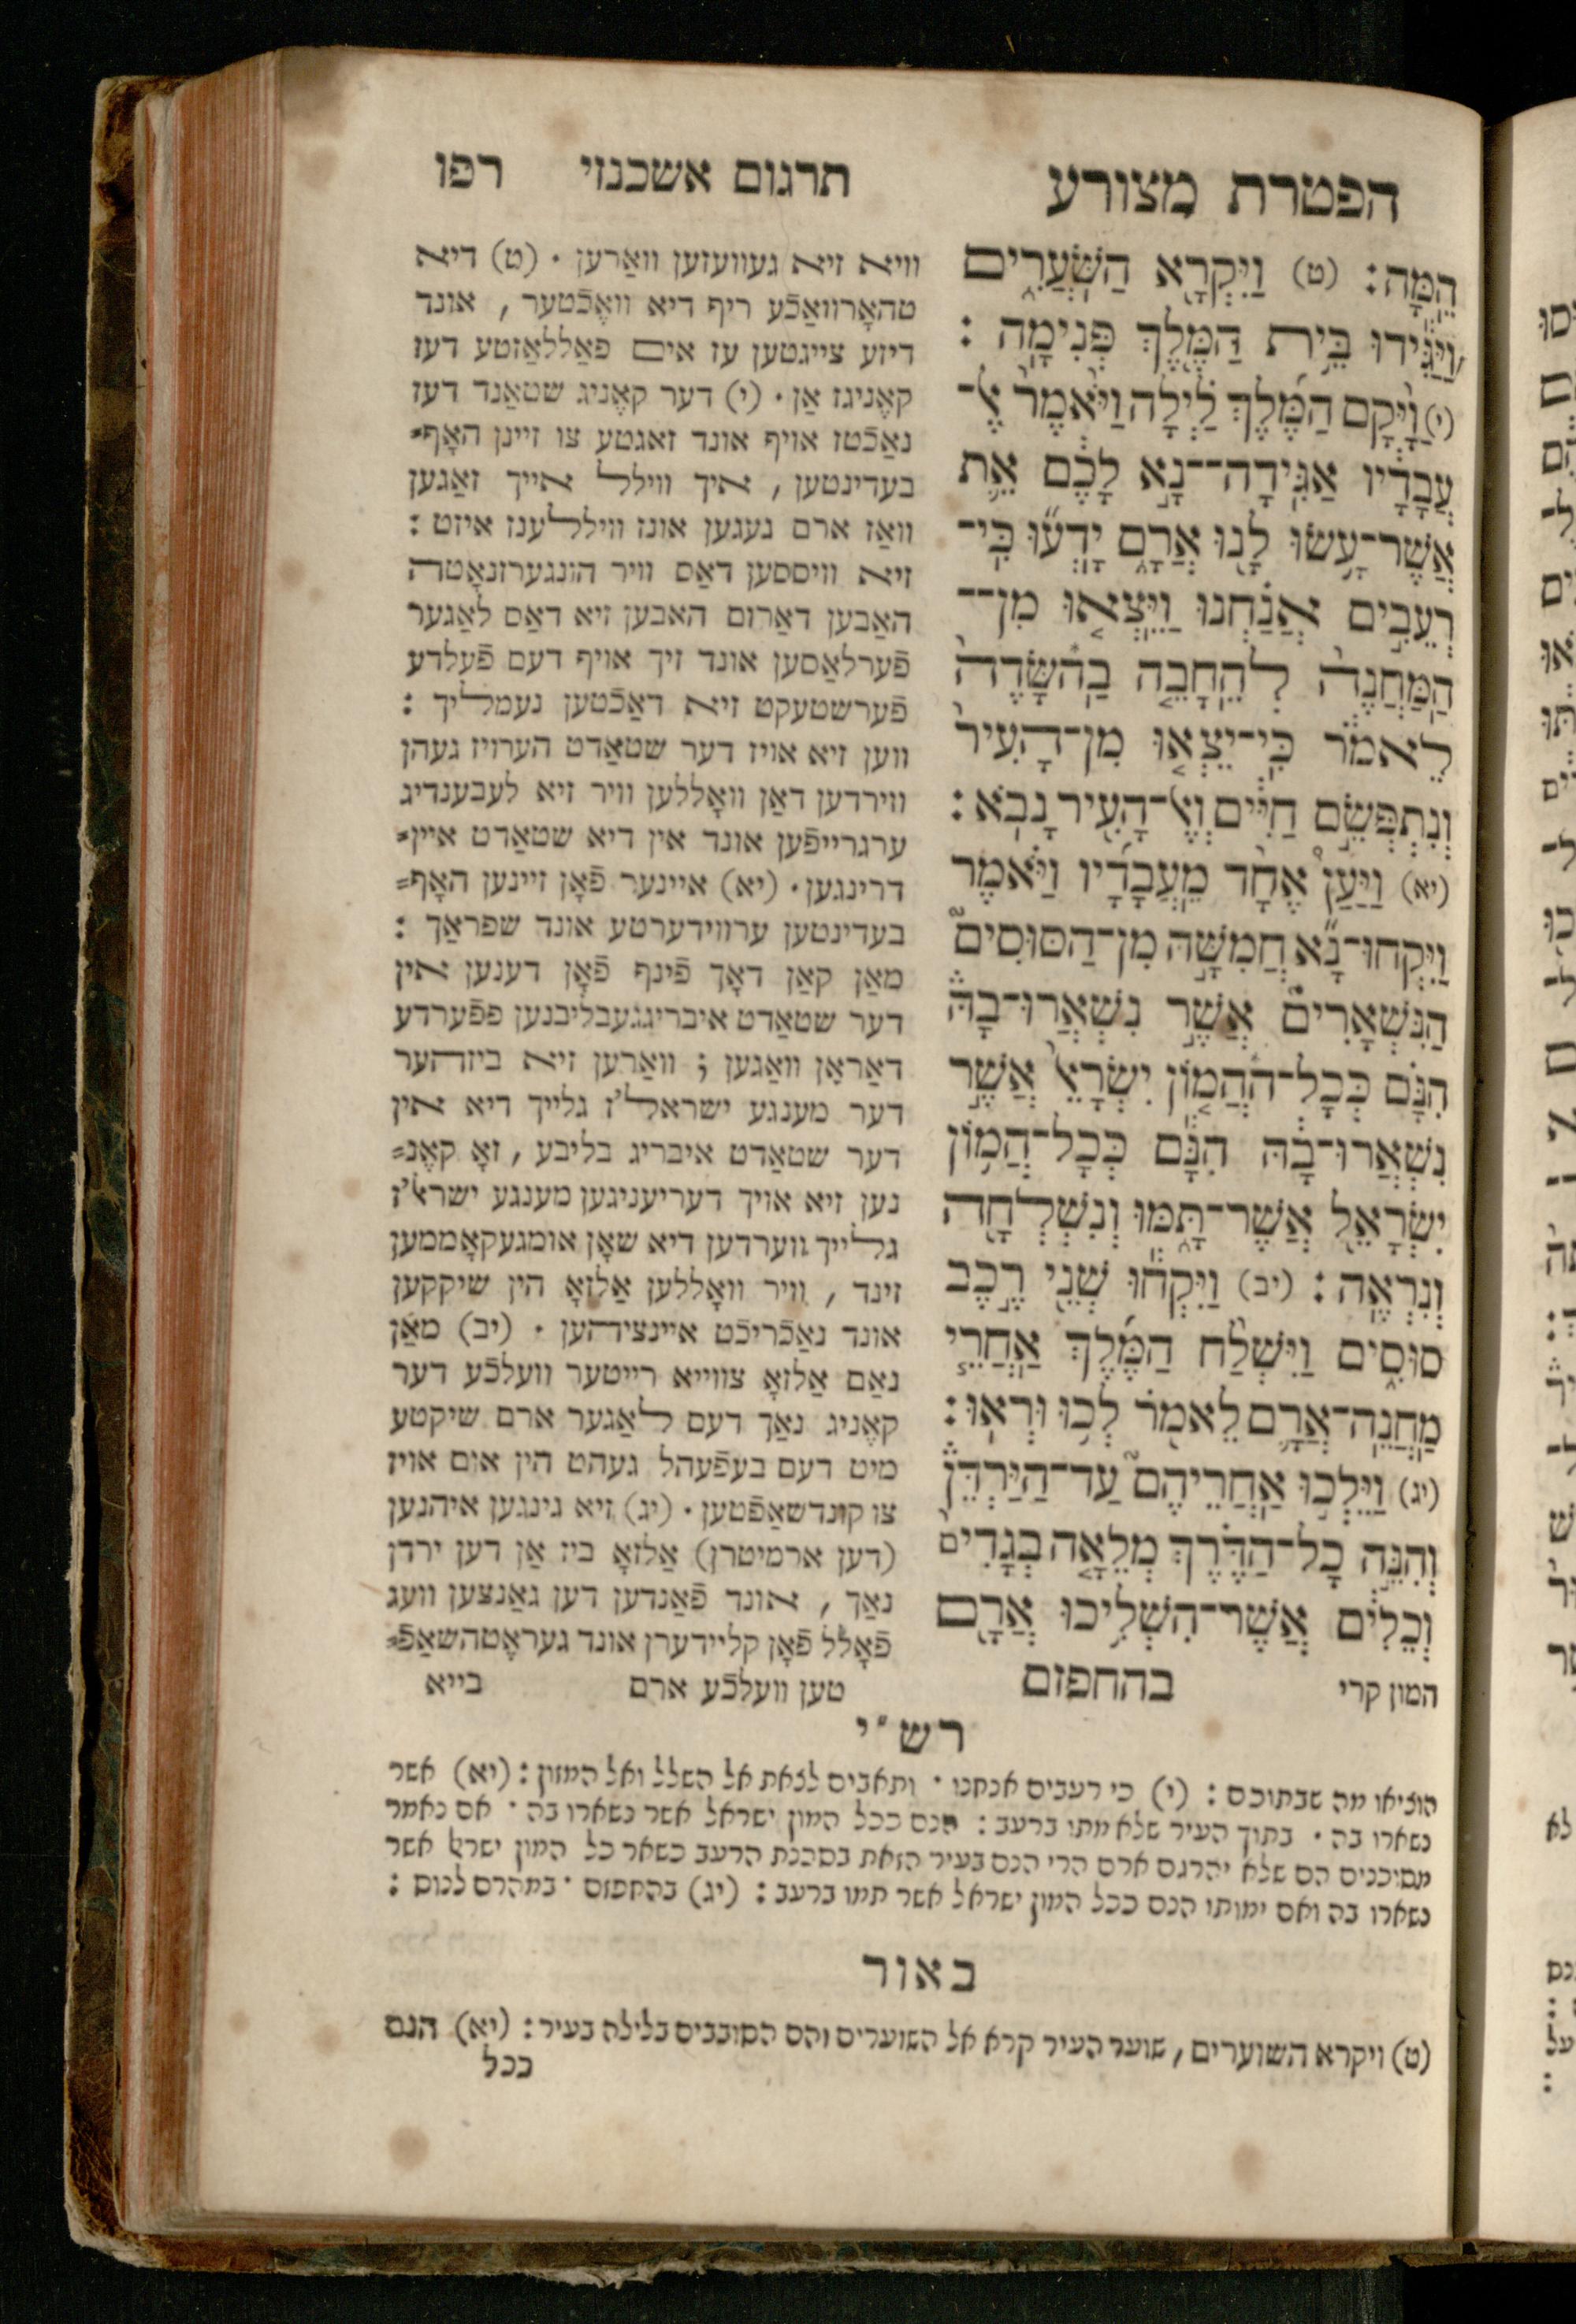 הפטרת מצורע
הֵמָּה׃ (ט) וַיִּקְרָא הַשֹּׁעֲרִים
וַיַּגִּידוּ בֵּית הַמֶּלֶךְ פְּנִימָה׃
(י) וַיָּקָם הַמֶּלֶךְ לַיְלָה וַיֹּאמֶר אֶל־
עֲבָדָיו אַגִּידָה־נָּא לָכֶם אֵת
אֲשֶׁר־עָשׂוּ לָנוּ אֲרָם יָדְעוּ כִּי־
רְעֵבִים אֲנַחְנוּ וַיֵּצְאוּ מִן־
הַמַּחֲנֶה לְהֵחָבֵה בְהַשָּׂדֶה
לֵאמֹר כִּי־יֵצְאוּ מִן־הָעִיר
וְנִתְפְּשֵׂם חַיִּים וְאֶל־הָעִיר נָבֹא׃
(יא) וַיַּעַן אֶחָד מֵעֲבָדָיו וַיֹּאמֶר
וְיִקְחוּ־נָא חֲמִשָּׁה מִן־הַסּוּסִים
הַנִּשְׁאָרִים אֲשֶׁר נִשְׁאֲרוּ־בָהּ
הִנָּם כְּכָל־הַהֲמוֹן יִשְׂרָאֵל אֲשֶׁר
נִשְׁאֲרוּ־בָהּ הִנָּם כְּכָל־הֲמוֹן
יִשְׂרָאֵל אֲשֶׁר־תָּמּוּ וְנִשְׁלְחָה
וְנִרְאֶה׃ (יב) וַיִּקְחוּ שְׁנֵי רֶכֶב
סוּסִים וַיִּשְׁלַח הַמֶּלֶךְ אַחֲרֵי
מַחֲנֵה־אֲרָם לֵאמֹר לְכוּ וּרְאוּ׃
(יג) וַיֵּלְכוּ אַחֲרֵיהֶם עַד־הַיַּרְדֵּן
וְהִנֵּה כָל־הַדֶּרֶךְ מְלֵאָה בְגָדִים
וְכֵלִים אֲשֶׁר־הִשְׁלִיכוּ אֲרָם
המון קרי בהחפזם
תרגום אשכנזי רפו
וויא זיא געוועזען וואַרען . (ט) דיא
טהאָרוואַכֿע ריף דיא וואֶכֿטער , אונד
דיזע צייגטען עז אים פאַללאַזטע דעז
קאֶניגז אַן . (י) דער קאֶניג שטאַנד דעז
נאַכֿטז אויף אונד זאגטע צו זיינן האָף=
בעדינטען , איך ווילל אייך זאַגען
וואַז ארם געגען אונז וויללענז איזט :
זיא וויססען דאַס וויר הונגערזנאָטה
האַבען דאַרום האבען זיא דאַס לאַגער
פֿערלאַסען אונד זיך אויף דעם פֿעלדע
פֿערשטעקט זיא דאַכֿטען נעמליך :
ווען זיא אויז דער שטאַדט הערויז געהן
ווירדען דאַן וואָללען וויר זיא לעבענדיג
ערגרייפֿען אונד אין דיא שטאַדט איין=
דרינגען . (יא) איינער פֿאָן זיינען האָף=
בעדינטען ערווידערטע אונד שפראַך :
מאַן קאַן דאָך פֿינף פֿאָן דענען אין
דער שטאַדט איבריגגעבליבנען פפֿערדע
דאַראָן וואַגען ; וואַרען זיא ביזהער
דער מענגע ישראל'ז גלייך דיא אין
דער שטאַדט איבריג בליבע , זאָ קאֶנ=
נען זיא אויך דעריעניגען מענגע ישראל'ז
גלייך ווערדען דיא שאָן אומגעקאָממען
זינד , וויר וואָללען אַלזאָ הין שיקקען
אונד נאַכֿריכֿט איינציהען . (יב) מאַן
נאַם אַלזאָ צווייא רייטער וועלכֿע דער
קאֶניג נאַך דעם לאַגער ארם שיקטע
מיט דעם בעפֿעהל געהט הין אום אויז
צו קונדשאַפֿטען . (יג) זיא גינגען איהנען
(דען ארמיטרן) אַלזאָ ביז אַן דען ירדן
נאַך , אונד פֿאַנדען דען גאַנצען וועג
פֿאָלל פֿאָן קליידערן אונד געראֶטהשאַפֿ=
טען וועלכֿע ארם בייא
רש״י
הוציאו מה שבתוכם : (י) כי רעבים אנחנו . ותאבים לצאת אל השלל ואל המזון : (יא) אשר
נשארו בה . בתוך העיר שלא מתו ברעב : הנם ככל המון ישראל אשר נשארו בה . אם נאמר
מסוכנים הם שלא יהרגם ארם הרי הנם בעיר הזאת בסכנת הרעב כשאר כל המון ישראל אשר
נשארו בה ואם ימותו הנם ככל המון ישראל אשר תמו ברעב : (יג) בהחפזם . במהרם לנוס :
באור
(ט) ויקרא השוערים , שוער העיר קרא אל השוערים והם הסובבים בלילה בעיר : (יא) הנם
ככל